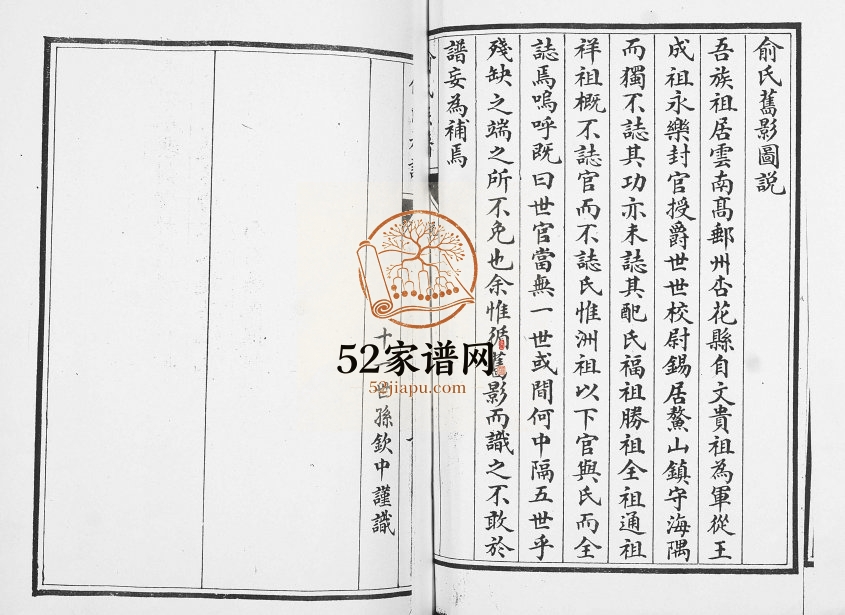 俞氏舊影圖説
吾族祖居雲南髙郵州杏花縣自文貴祖為軍從王
成祖永樂封官授爵世世校尉錫居鰲山鎮守海隅
而獨不誌其功亦未誌其配氏福祖勝祖全祖通祖
祥祖概不誌官而不誌氏惟洲祖以下官與氏而全
誌焉嗚呼既曰世官當無一世或間何中隔五世乎
殘缺之端之所不免也余惟循舊影而識之不敢於
譜妄為補焉
十 世孫欽中謹識
52家谱网
52jiapu.com